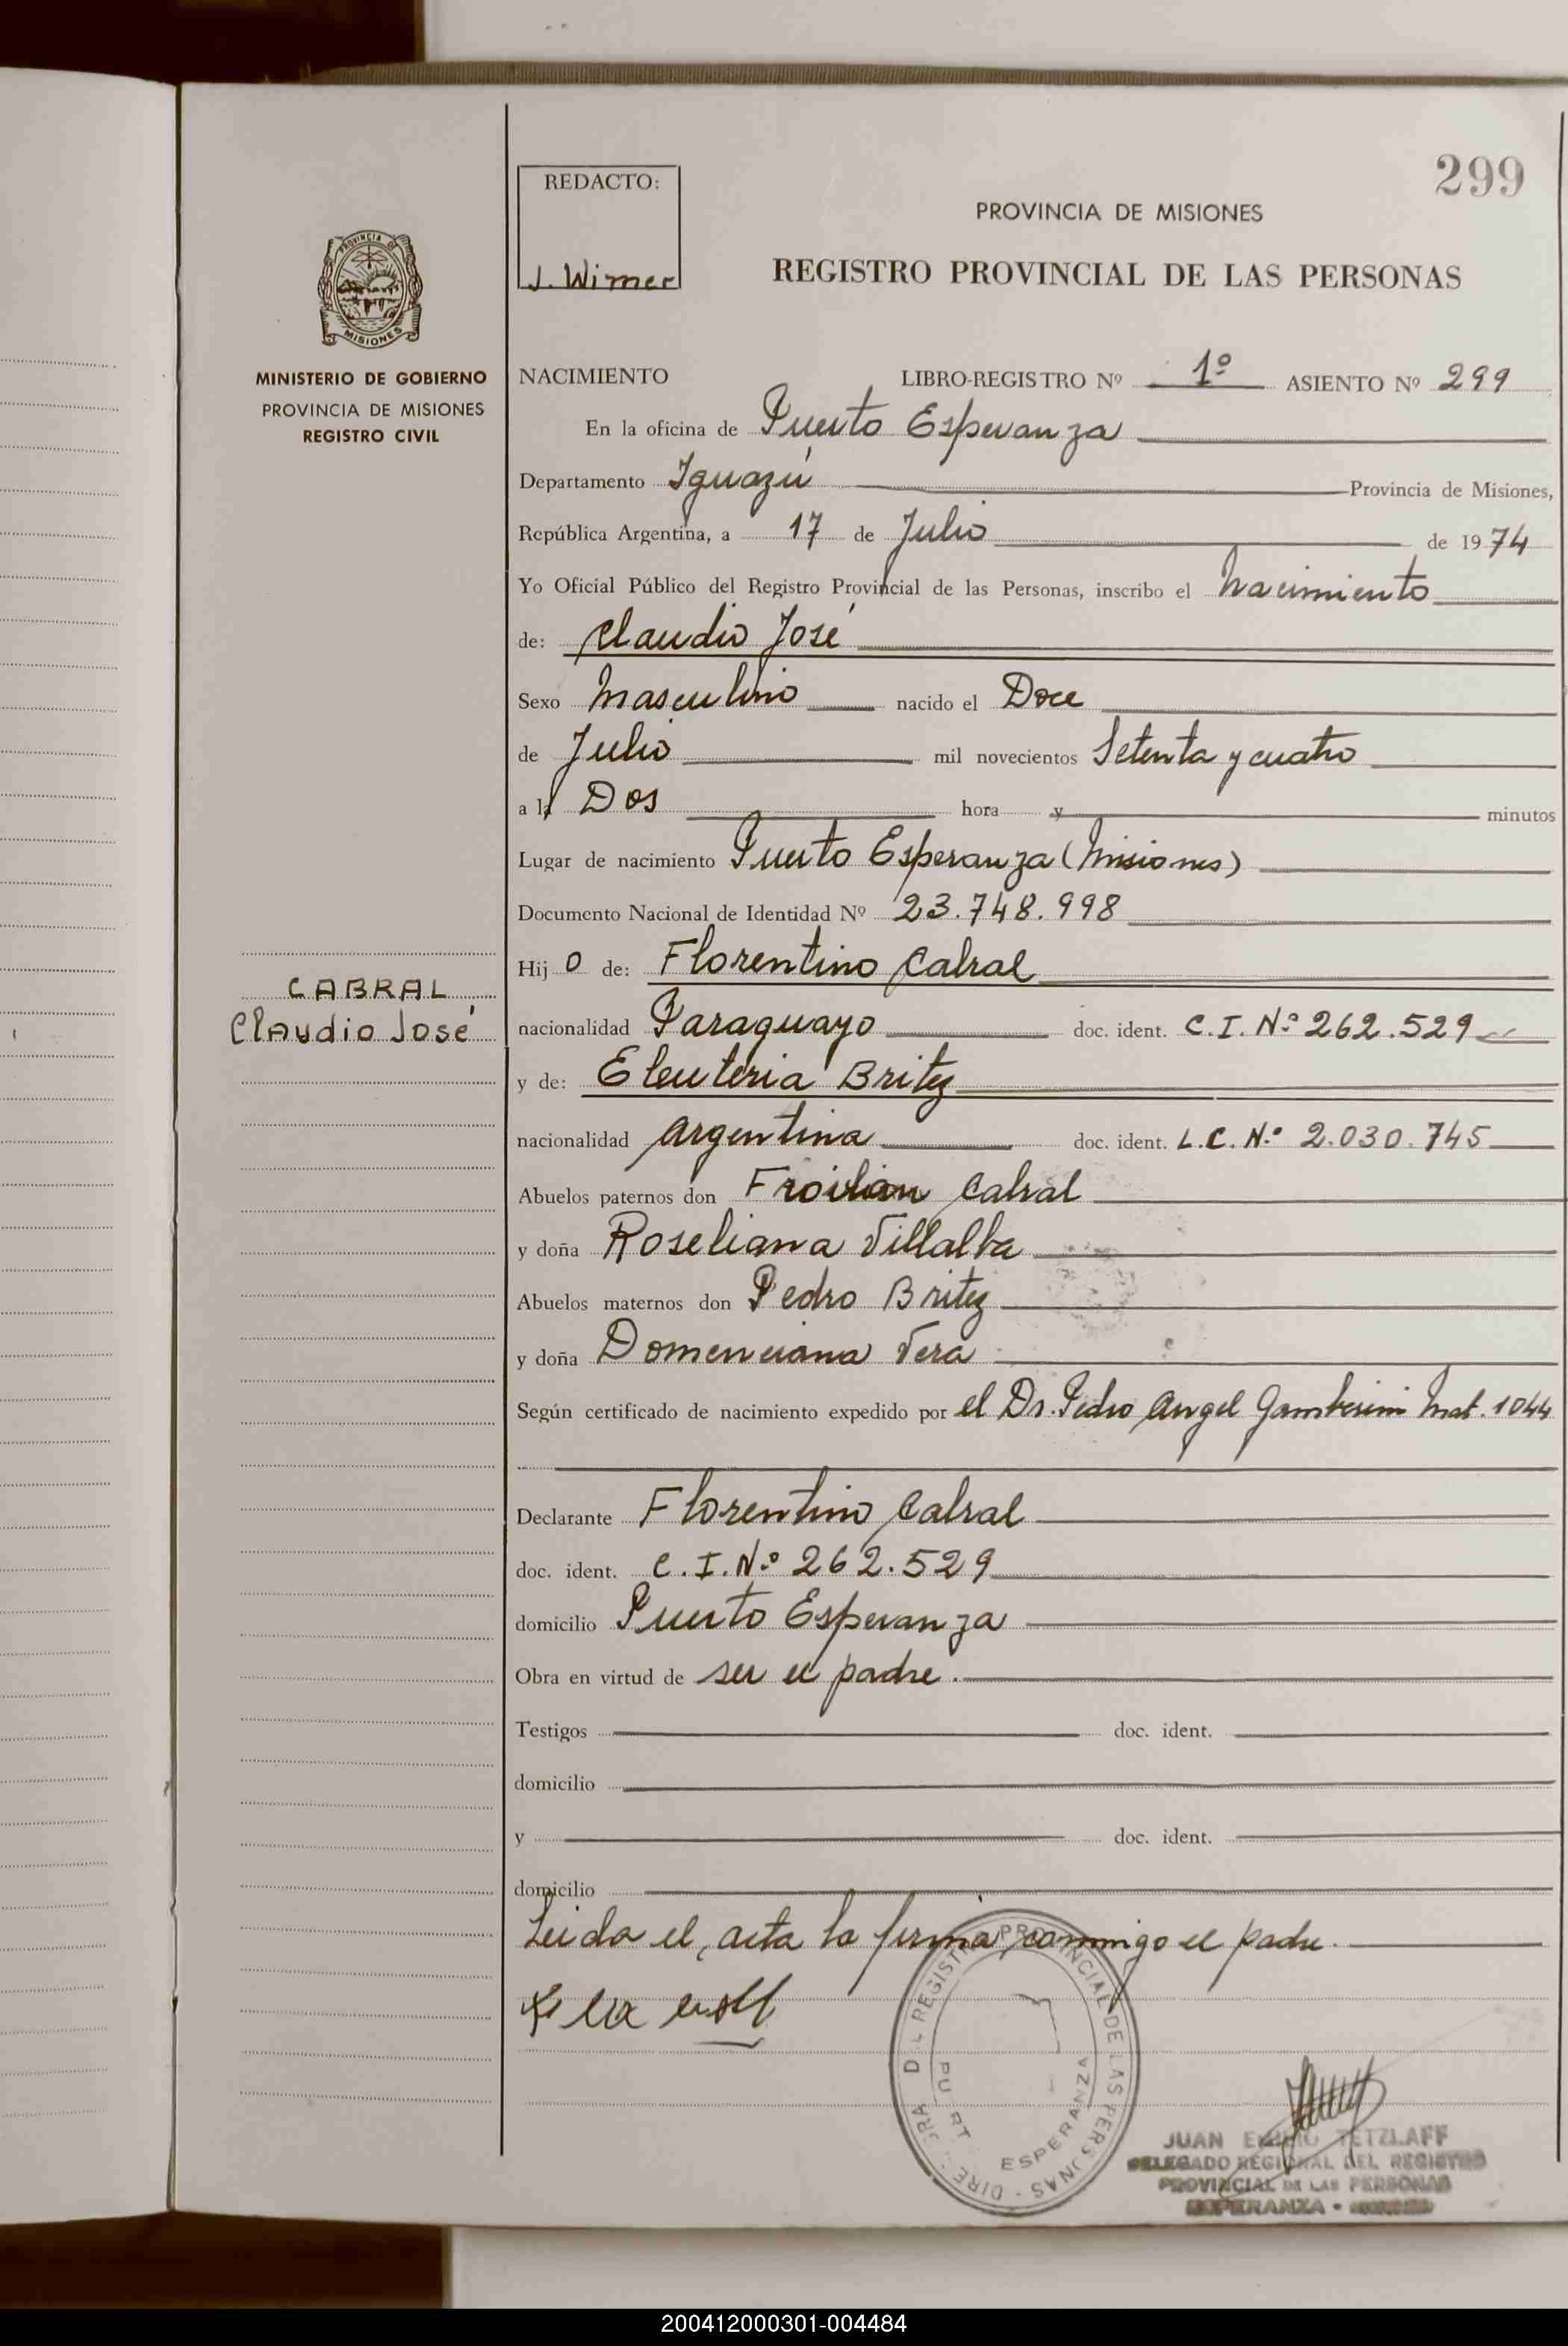 299
REDACTO:
J. Wimer
PROVINCIA DE MISIONES
REGISTRO PROVINCIAL DE LAS PERSONAS
PROVINCIA DE
MISIONES
MINISTERIO DE GOBIERNO
PROVINCIA DE MISIONES
REGISTRO CIVIL
NACIMIENTO LIBRO-REGISTRO Nº 1º ASIENTO Nº 299
En la oficina de Puerto Esperanza
Departamento Iguazú Provincia de Misiones,
República Argentina, a 17 de Julio de 1974
Yo Oficial Público del Registro Provincial de las Personas, inscribo el Nacimiento
de: Claudio José
Sexo Masculino nacido el Doce
de Julio mil novecientos Setenta y cuatro
a la Dos hora y minutos
Lugar de nacimiento Puerto Esperanza (Misiones)
Documento Nacional de Identidad Nº 23.748.998
Hijo de: Florentino Cabral
CABRAL
Claudio José
nacionalidad Paraguayo doc. ident. C.I. Nº 262.529
y de: Eleuteria Britez
nacionalidad Argentina doc. ident. L.C. Nº 2.030.745
Abuelos paternos don Froilán Cabral
y doña Roseliana Villalba
Abuelos maternos don Pedro Britez
y doña Domenciana Vera
Según certificado de nacimiento expedido por el Dr. Pedro Angel Gamberini Mat. 1044
Declarante Florentino Cabral
doc. ident. C.I. Nº 262.529
domicilio Puerto Esperanza
Obra en virtud de ser el padre.
Testigos doc. ident.
domicilio
y doc. ident.
domicilio
Leida el acta la firma conmigo el padre.
REGISTRO PROVINCIAL DE LAS PERSONAS
ESPERANZA
JUAN EMILIO TETZLAFF
DELEGADO REGIONAL DEL REGISTRO
PROVINCIAL DE LAS PERSONAS
ESPERANZA
200412000301-004484